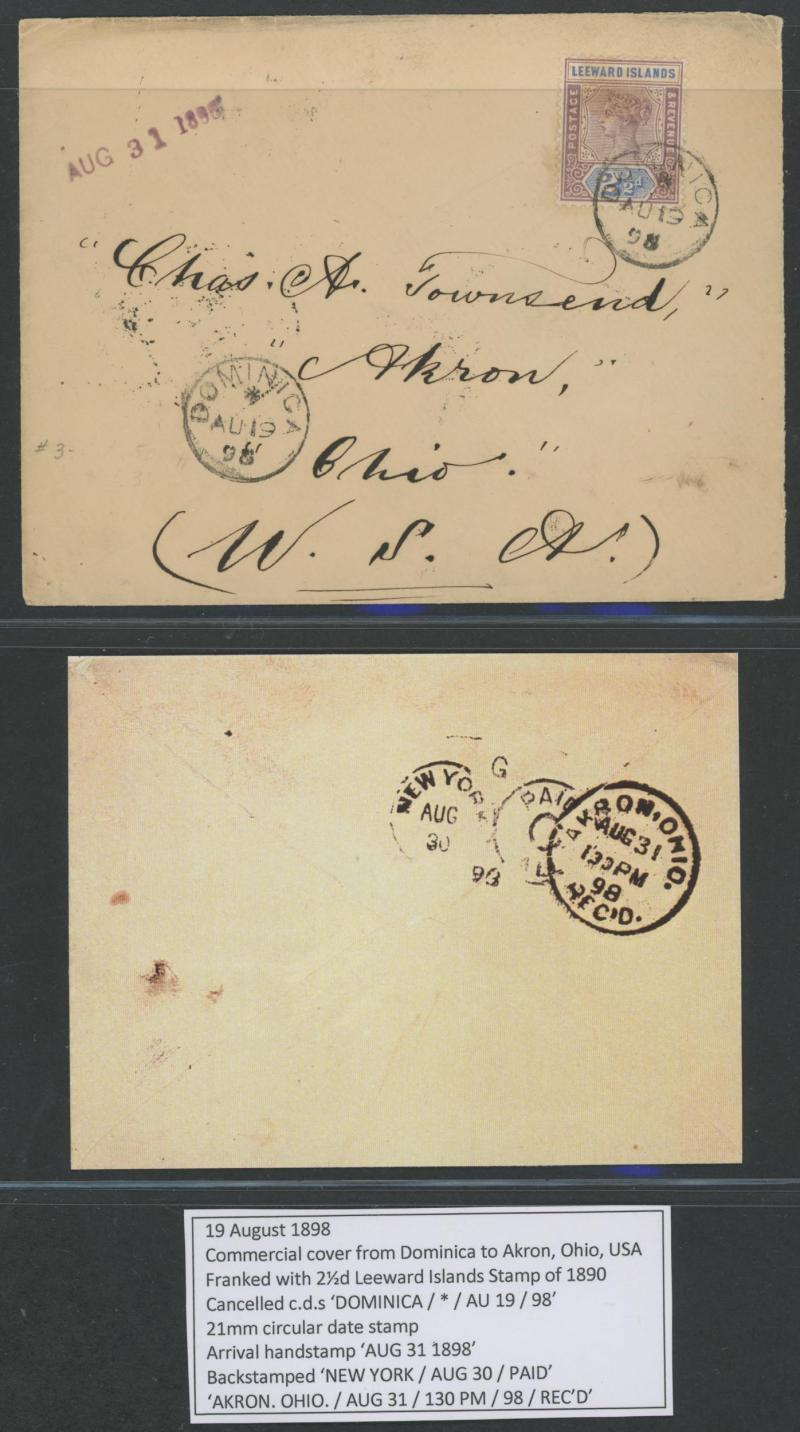 LEEWARD ISLANDS
POSTAGE
& REVENUE
2½d
AUG 31 1898
DOMINICA
AU 19
98
"Chas. A. Townsend,"
"Akron,"
Ohio."
(U. S. A.)
DOMINICA
*
AU 19
98
# 3-
G
NEW YORK
AUG
30
98
PAID
AKRON, OHIO.
AUG 31
130 PM
98
REC'D.
19 August 1898
Commercial cover from Dominica to Akron, Ohio, USA
Franked with 2½d Leeward Islands Stamp of 1890
Cancelled c.d.s 'DOMINICA / * / AU 19 / 98'
21mm circular date stamp
Arrival handstamp 'AUG 31 1898'
Backstamped 'NEW YORK / AUG 30 / PAID'
'AKRON. OHIO. / AUG 31 / 130 PM / 98 / REC'D'